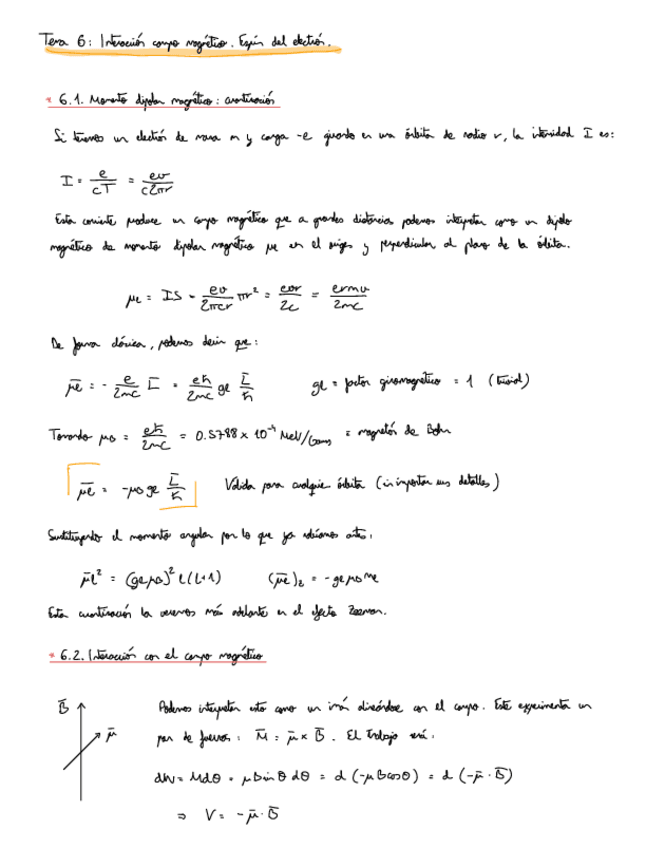 Tema 6: Interacción campo magnético. Espín del electrón.
* 6.1. Momento dipolar magnético: cuantización
Si tenemos un electrón de masa m y carga -e girando en una órbita de radio r, la intensidad I es:
I = e/cT = ev/c2πr
Esta corriente produce un campo magnético que a grandes distancias podemos interpretar como un dipolo
magnético de momento dipolar magnético μe en el origen y perpendicular al plano de la órbita.
μe = IS = ev/2πcr πr² = evr/2c = ermv/2mc
De forma clásica, podemos decir que:
μ̄e = - e/2mc L̄ = eħ/2mc ge L̄/ħ    ge = factor giromagnético = 1 (trivial)
Tomando μB = eħ/2mc = 0.5788 x 10⁻⁴ MeV/Gauss = magnetón de Bohr
μ̄e = -μB ge L̄/ħ    Válida para cualquier órbita (sin importar sus detalles)
Sustituyendo el momento angular por lo que ya sabíamos antes:
μ̄l² = (ge μB)² l(l+1)    (μ̄e)z = -ge μB me
Esta cuantización la veremos más adelante en el efecto Zeeman.
* 6.2. Interacción con el campo magnético
B̄    Podemos interpretar esto como un imán alineándose con el campo. Este experimenta un
μ̄    par de fuerzas: M̄ = μ̄ x B̄. El trabajo será:
dW = Mdθ = μBsinθdθ = d(-μBcosθ) = d(-μ̄·B̄)
⇒ V = -μ̄·B̄